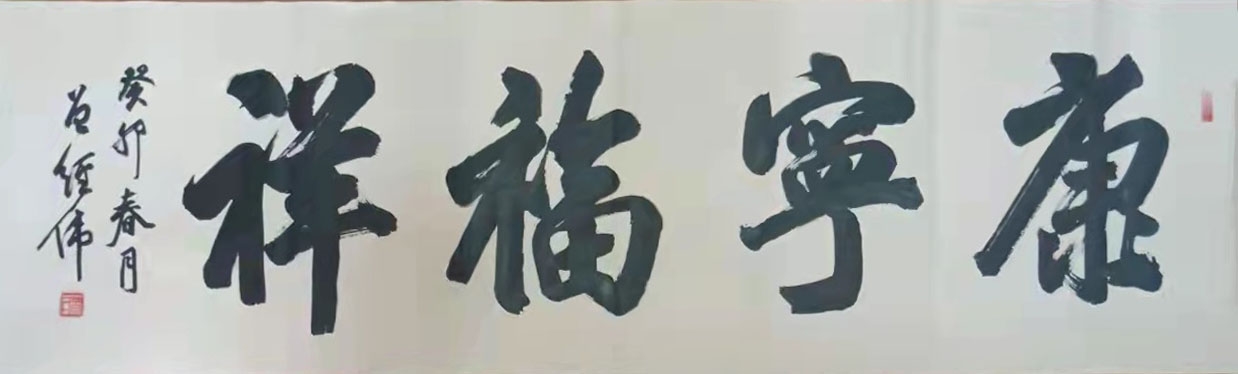 康寧福祥
癸卯春月
經伟